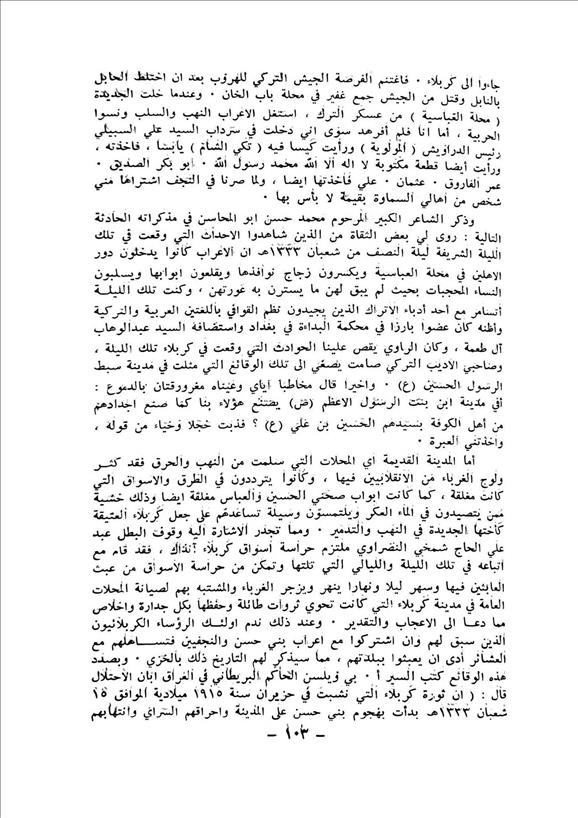 جاءوا الى كربلاء ٠ فاغتنم الفرصة الجيش التركي للهروب بعد ان اختلط الحابل
بالنابل وقتل من الجيش جمع غفير في محلة باب الخان ٠ وعندما خلت الجديدة
( محلة العباسية ) من عسكر الترك ، استغل الاعراب النهب والسلب ونسوا
الحربية ، أما أنا فلم أفرهد سوى اني دخلت في سرداب السيد علي السبيلي
رئيس الدراويش ( المولوية ) ورأيت كيسا فيه ( تكي الشام ) يابسا ، فاخذته ،
ورأيت أيضا قطعة مكتوبة لا اله الا الله محمد رسول الله ٠ ابو بكر الصديق ٠
عمر الفاروق ٠ عثمان ٠ علي فأخذتها ايضا ، ولما صرنا في النجف اشتراها مني
شخص من اهالي السماوة بقيمة لا بأس بها ٠
وذكر الشاعر الكبير المرحوم محمد حسن ابو المحاسن في مذكراته الحادثة
التالية : روى لي بعض الثقاة من الذين شاهدوا الاحداث التي وقعت في تلك
الليلة الشريفة ليلة النصف من شعبان ١٣٣٣هـ ان الاعراب كانوا يدخلون دور
الاهلين في محلة العباسية ويكسرون زجاج نوافذها ويقلعون ابوابها ويسلبون
النساء المحجبات بحيث لم يبق لهن ما يسترن به عورتهن ، وكنت تلك الليلة
أتسامر مع أحد أدباء الاتراك الذين يجيدون نظم القوافي باللغتين العربية والتركية
وأظنه كان عضوا بارزا في محكمة البداءة في بغداد واستضافه السيد عبدالوهاب
آل طعمة ، وكان الراوي يقص علينا الحوادث التي وقعت في كربلاء تلك الليلة ،
وصاحبي الأديب التركي صامت يصغي الى تلك الوقائع التي مثلت في مدينة سبط
الرسول الحسين (ع) ٠ واخيرا قال مخاطبا اياي وعيناه مغرورقتان بالدموع :
أفي مدينة ابن بنت الرسول الاعظم (ص) يصنع هؤلاء بنا كما صنع اجدادهم
من أهل الكوفة بسيدهم الحسين بن علي (ع) ؟ فذبت خجلا وحياء من قوله ،
واخذتني العبرة ٠
أما المدينة القديمة اي المحلات التي سلمت من النهب والحرق فقد كثر
ولوج الغرباء من الانقلابيين فيها ، وكانوا يترددون في الطرق والاسواق التي
كانت مغلقة ، كما كانت ابواب صحني الحسين والعباس مغلقة ايضا وذلك خشية
ممن يتصيدون في الماء العكر ويلتمسون وسيلة تساعدهم على جعل كربلاء العتيقة
كأختها الجديدة في النهب والتدمير ٠ ومما تجدر الاشارة اليه وقوف البطل عبد
علي الحاج شمخي النصراوي ملتزم حراسة أسواق كربلاء آنذاك ، فقد قام مع
اتباعه في تلك الليلة والليالي التي تلتها وتمكن من حراسة الأسواق من عبث
العابثين فيها وسهر ليلا ونهارا ينهر ويزجر الغرباء والمشتبه بهم لصيانة المحلات
العامة في مدينة كربلاء التي كانت تحوي ثروات طائلة وحفظها بكل جدارة واخلاص
مما دعا الى الاعجاب والتقدير ٠ وعند ذلك ندم اولئك الرؤساء الكربلائيون
الذين سبق لهم وان اشتركوا مع اعراب بني حسن والنجفيين فتساهلهم مع
العشائر أدى ان يعبثوا ببلدتهم ، مما سيذكر لهم التاريخ ذلك بالخزي ٠ وبصدد
هذه الوقائع كتب السير أ ٠ بي ويلسن الحاكم البريطاني في العراق ابان الاحتلال
قال : ( ان ثورة كربلاء التي نشبت في حزيران سنة ١٩١٥ ميلادية الموافق ١٥
شعبان ١٣٣٣هـ بدأت بهجوم بني حسن على المدينة واحراقهم السراي وانتهابهم
– ١٠٣ –